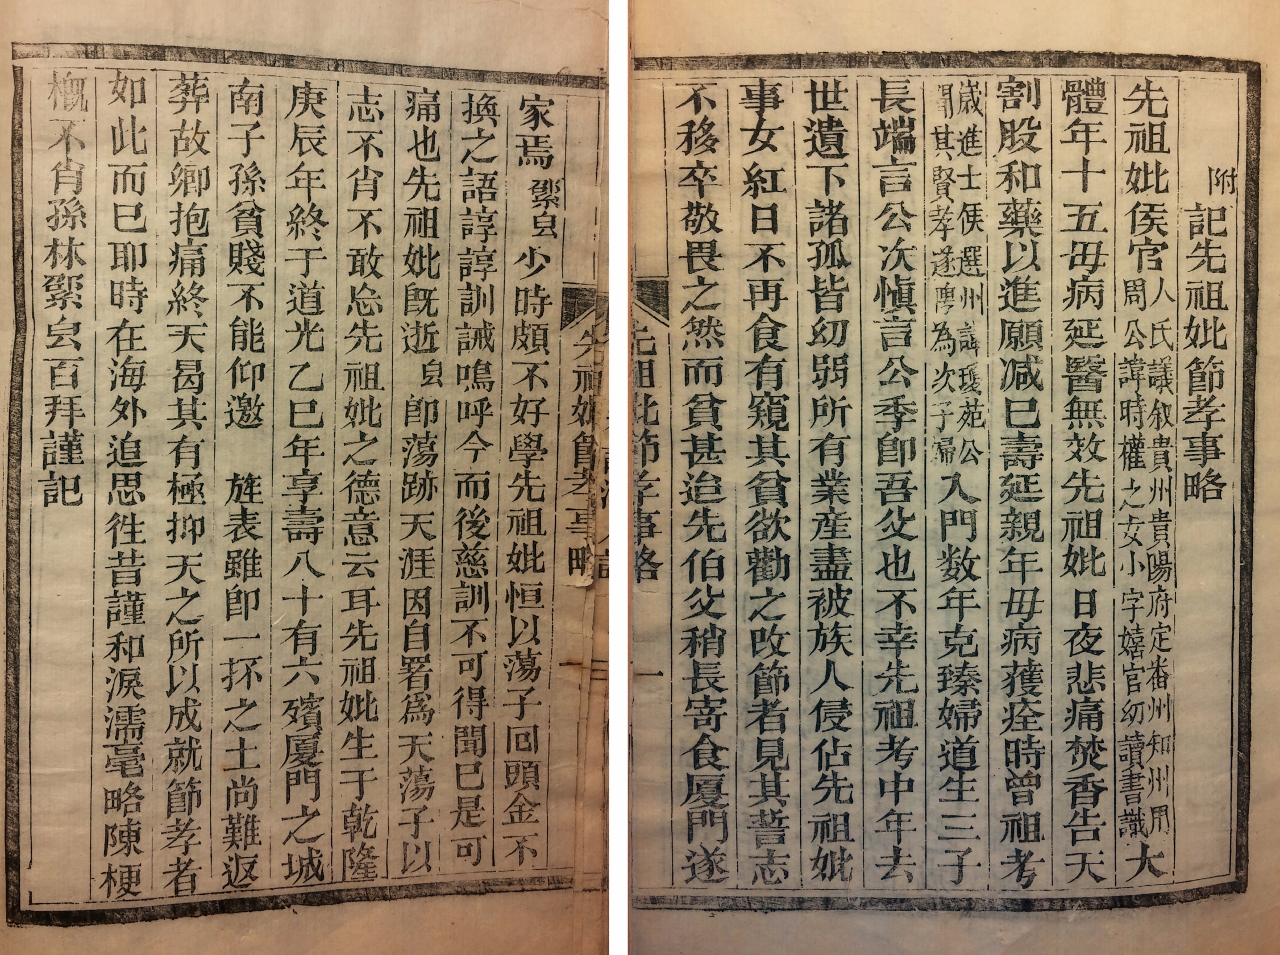 附
記先祖妣節孝事略
先祖妣侯官人氏議叙貴州貴陽府定番州知州用周公諱時權之女小字嬉官幼讀書識大
體年十五毋病延醫無效先祖妣日夜悲痛焚香告天
割股和藥以進願减巳壽延親年毋病獲痊時曾祖考
歲進士侯選州諱瓊苑公聞其賢孝遂聘為次子婦入門数年克臻婦道生三子
長端言公次愼言公季卽吾父也不幸先祖考中年去
世遺下諸孤皆幼弱所有業産盡被族人侵佔先祖妣
事女紅日不再食有窺其貧欲勸之改節者見其誓志
不移卒敬畏之然而貧甚迨先伯父稍長寄食厦門遂
先祖妣節孝事略
一
家焉鍼䖝少時頗不好學先祖妣恒以蕩子回頭金不
換之語諄諄訓誡嗚呼今而後慈訓不可得聞巳是可
痛也先祖妣旣逝䖝卽蕩跡天涯因自署爲天蕩子以
志不肖不敢忘先祖妣之德意云耳先祖妣生于乾隆
庚辰年終于道光乙巳年享壽八十有六殯厦門之城
南子孫貧賤不能仰邀 旌表雖卽一抔之土尚難返
葬故鄉抱痛終天曷其有極抑天之所以成就節孝者
如此而巳耶時在海外追思徃昔謹和淚濡毫略陳梗
槪不肖孫林鍼䖝百拜謹記